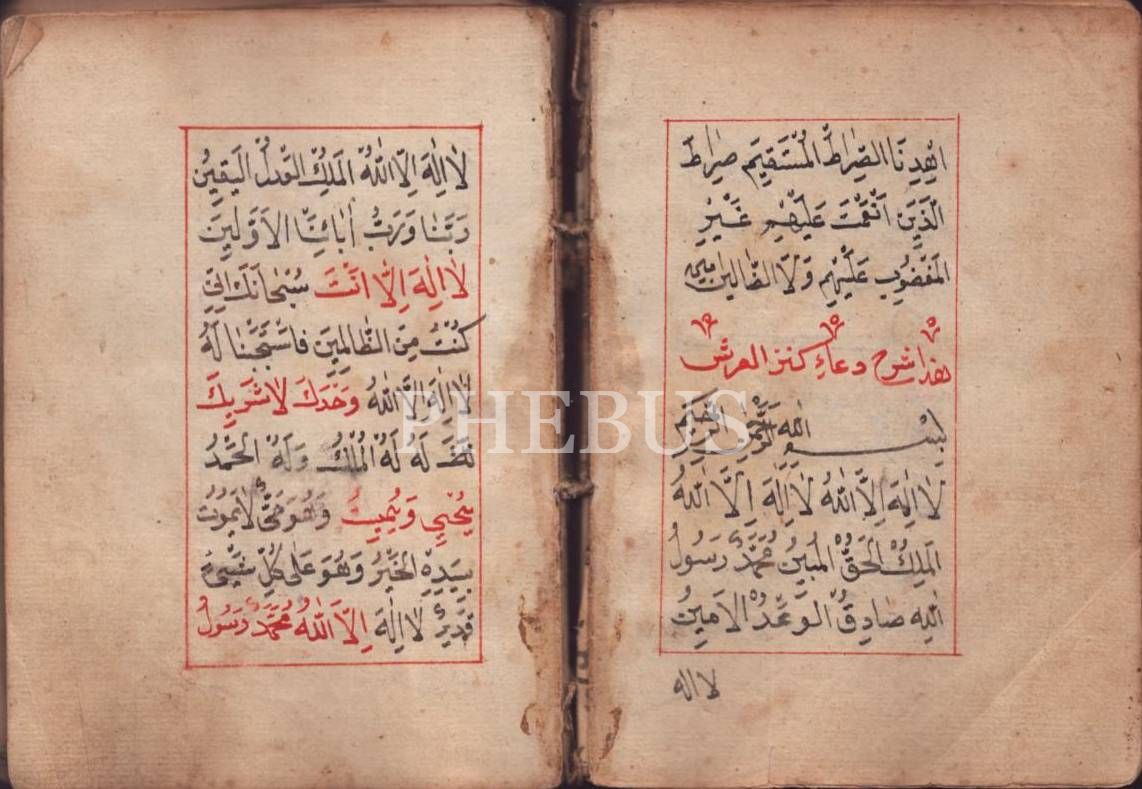 اِهْدِنَا الصِّرٰاطَ الْمُسْتَقِيَم صِرٰاطَ
الَّذِيَن اَنْعَمْتَ عَلَيْهِم غَيْرِ
الْمَغْضُوبِ عَلَيْهِم وَلَا الضّٰالّين
هٰذٰا شرح دعاءِ كنز العرش
بِسْمِ اللهِ الرَّحْمٰنِ الرَّحِيمِ
لَا اِلٰهَ اِلَّا اللهُ لَا اِلٰهَ اِلَّا اللهُ
الْمَلِكُ الْحَقُّ الْمُبِينُ مُحَمَّدٌ رَسُولُ
اللهِ صَادِقُ الْوَعْدُ الْاَمِينُ
لا اله
لَا اِلٰهَ اِلَّا اللهُ الْمَلِكُ الْعَدْلُ الْيَقِينُ
رَبَّنَا وَرَبُّ اٰبٰائِنَّا الْاَوَّلِينَ
لَا اِلٰهَ اِلَّا اَنْتَ سُبْحٰانَكَ اِنّىِ
كُنْتُ مِنَ الظّٰالِمِينَ فَاسْتَجَبْنٰا لَهُ
لَا اِلٰهَ اِلَّا اللهُ وَحْدَكَ لَا شَرِيكَ
لَهُ لَهُ الْمُلْكُ وَلَهُ الْحَمْدُ
يُحْيِي وَيُمِيتُ وَهُوَ حَىٌّ لَا يَمُوتُ
بِيَدِهِ الْخَيْرُ وَهُوَ عَلٰى كُلِّ شَيْىءٍ
قَدِيرٌ لَا اِلٰهَ اِلَّا اللهُ مُحَمَّدٌ رَسُولُ
PHEBUS